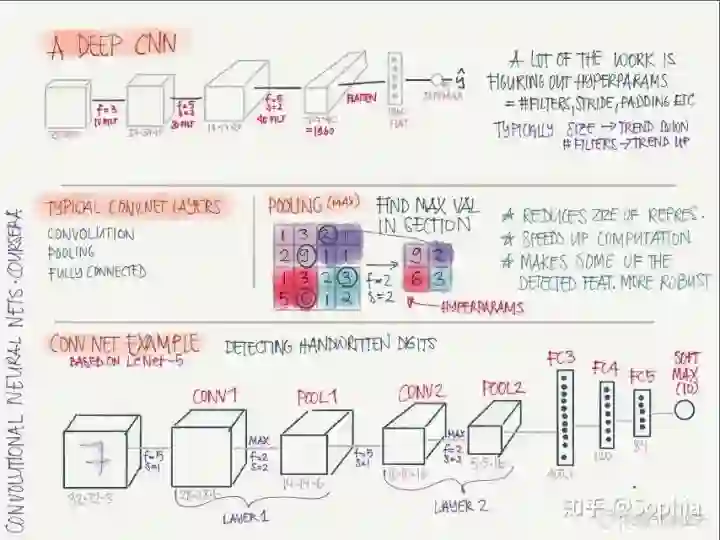 A DEEP CNN
f=3
10 FILT
f=5
s=2
20 FILT
f=5
s=2
40 FILT
=1960
FLATTEN
SOFTMAX
ŷ
A LOT OF THE WORK IS
FIGURING OUT HYPERPARAMS
= #FILTERS, STRIDE, PADDING ETC
TYPICALLY SIZE → TREND DOWN
#FILTERS → TREND UP
TYPICAL CONVNET LAYERS
CONVOLUTION
POOLING
FULLY CONNECTED
POOLING (MAX)
FIND MAX VAL
IN SECTION
1 3 2 1
2 9 1 1
1 3 2 3
5 6 1 2
f=2
s=2
9 2
6 3
HYPERPARAMS
★ REDUCES SIZE OF REPRES.
★ SPEEDS UP COMPUTATION
★ MAKES SOME OF THE
DETECTED FEAT. MORE ROBUST
CONVNET EXAMPLE
BASED ON LeNet-5
DETECTING HANDWRITTEN DIGITS
7
32·32·3
f=5
s=1
CONV1
28·28·6
MAX
f=2
s=2
POOL1
14·14·6
LAYER 1
f=5
s=1
CONV2
10·10·16
MAX
f=2
s=2
POOL2
5·5·16
LAYER 2
FC3
400,1
FC4
120
FC5
84
SOFT
MAX
(10)
CONVOLUTIONAL NEURAL NETS · COURSERA
知乎 @Sophia